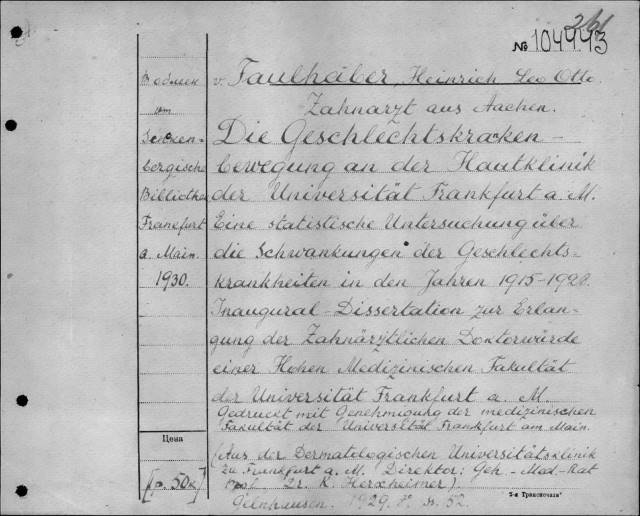 2/61
№ 10444З
Faulhaber, Heinrich Leo Otto,
Zahnarzt aus Aachen.
Die Geschlechtskranken-
bewegung an der Hautklinik
der Universität Frankfurt a. M.
Eine statistische Untersuchung über
die Schwankungen der Geschlechts-
krankheiten in den Jahren 1915-1928.
Inaugural-Dissertation zur Erlan-
gung der Zahnärztlichen Doktorwürde
einer Hohen Medizinischen Fakultät
der Universität Frankfurt a. M.
Gedruckt mit Genehmigung der medizinischen
Fakultät der Universität Frankfurt am Main.
(Aus der Dermatologischen Universitätsklinik
zu Frankfurt a. M. Direktor: Geh.-Med-Rat
Prof. Dr. K. Herxheimer).
Gelnhausen. 1929. 8°. ss. 52.
Senken-
bergische
Bibliothek
Francfurt
a. Main.
1930.
Цена
[р. 50к]
7-я Транспечать